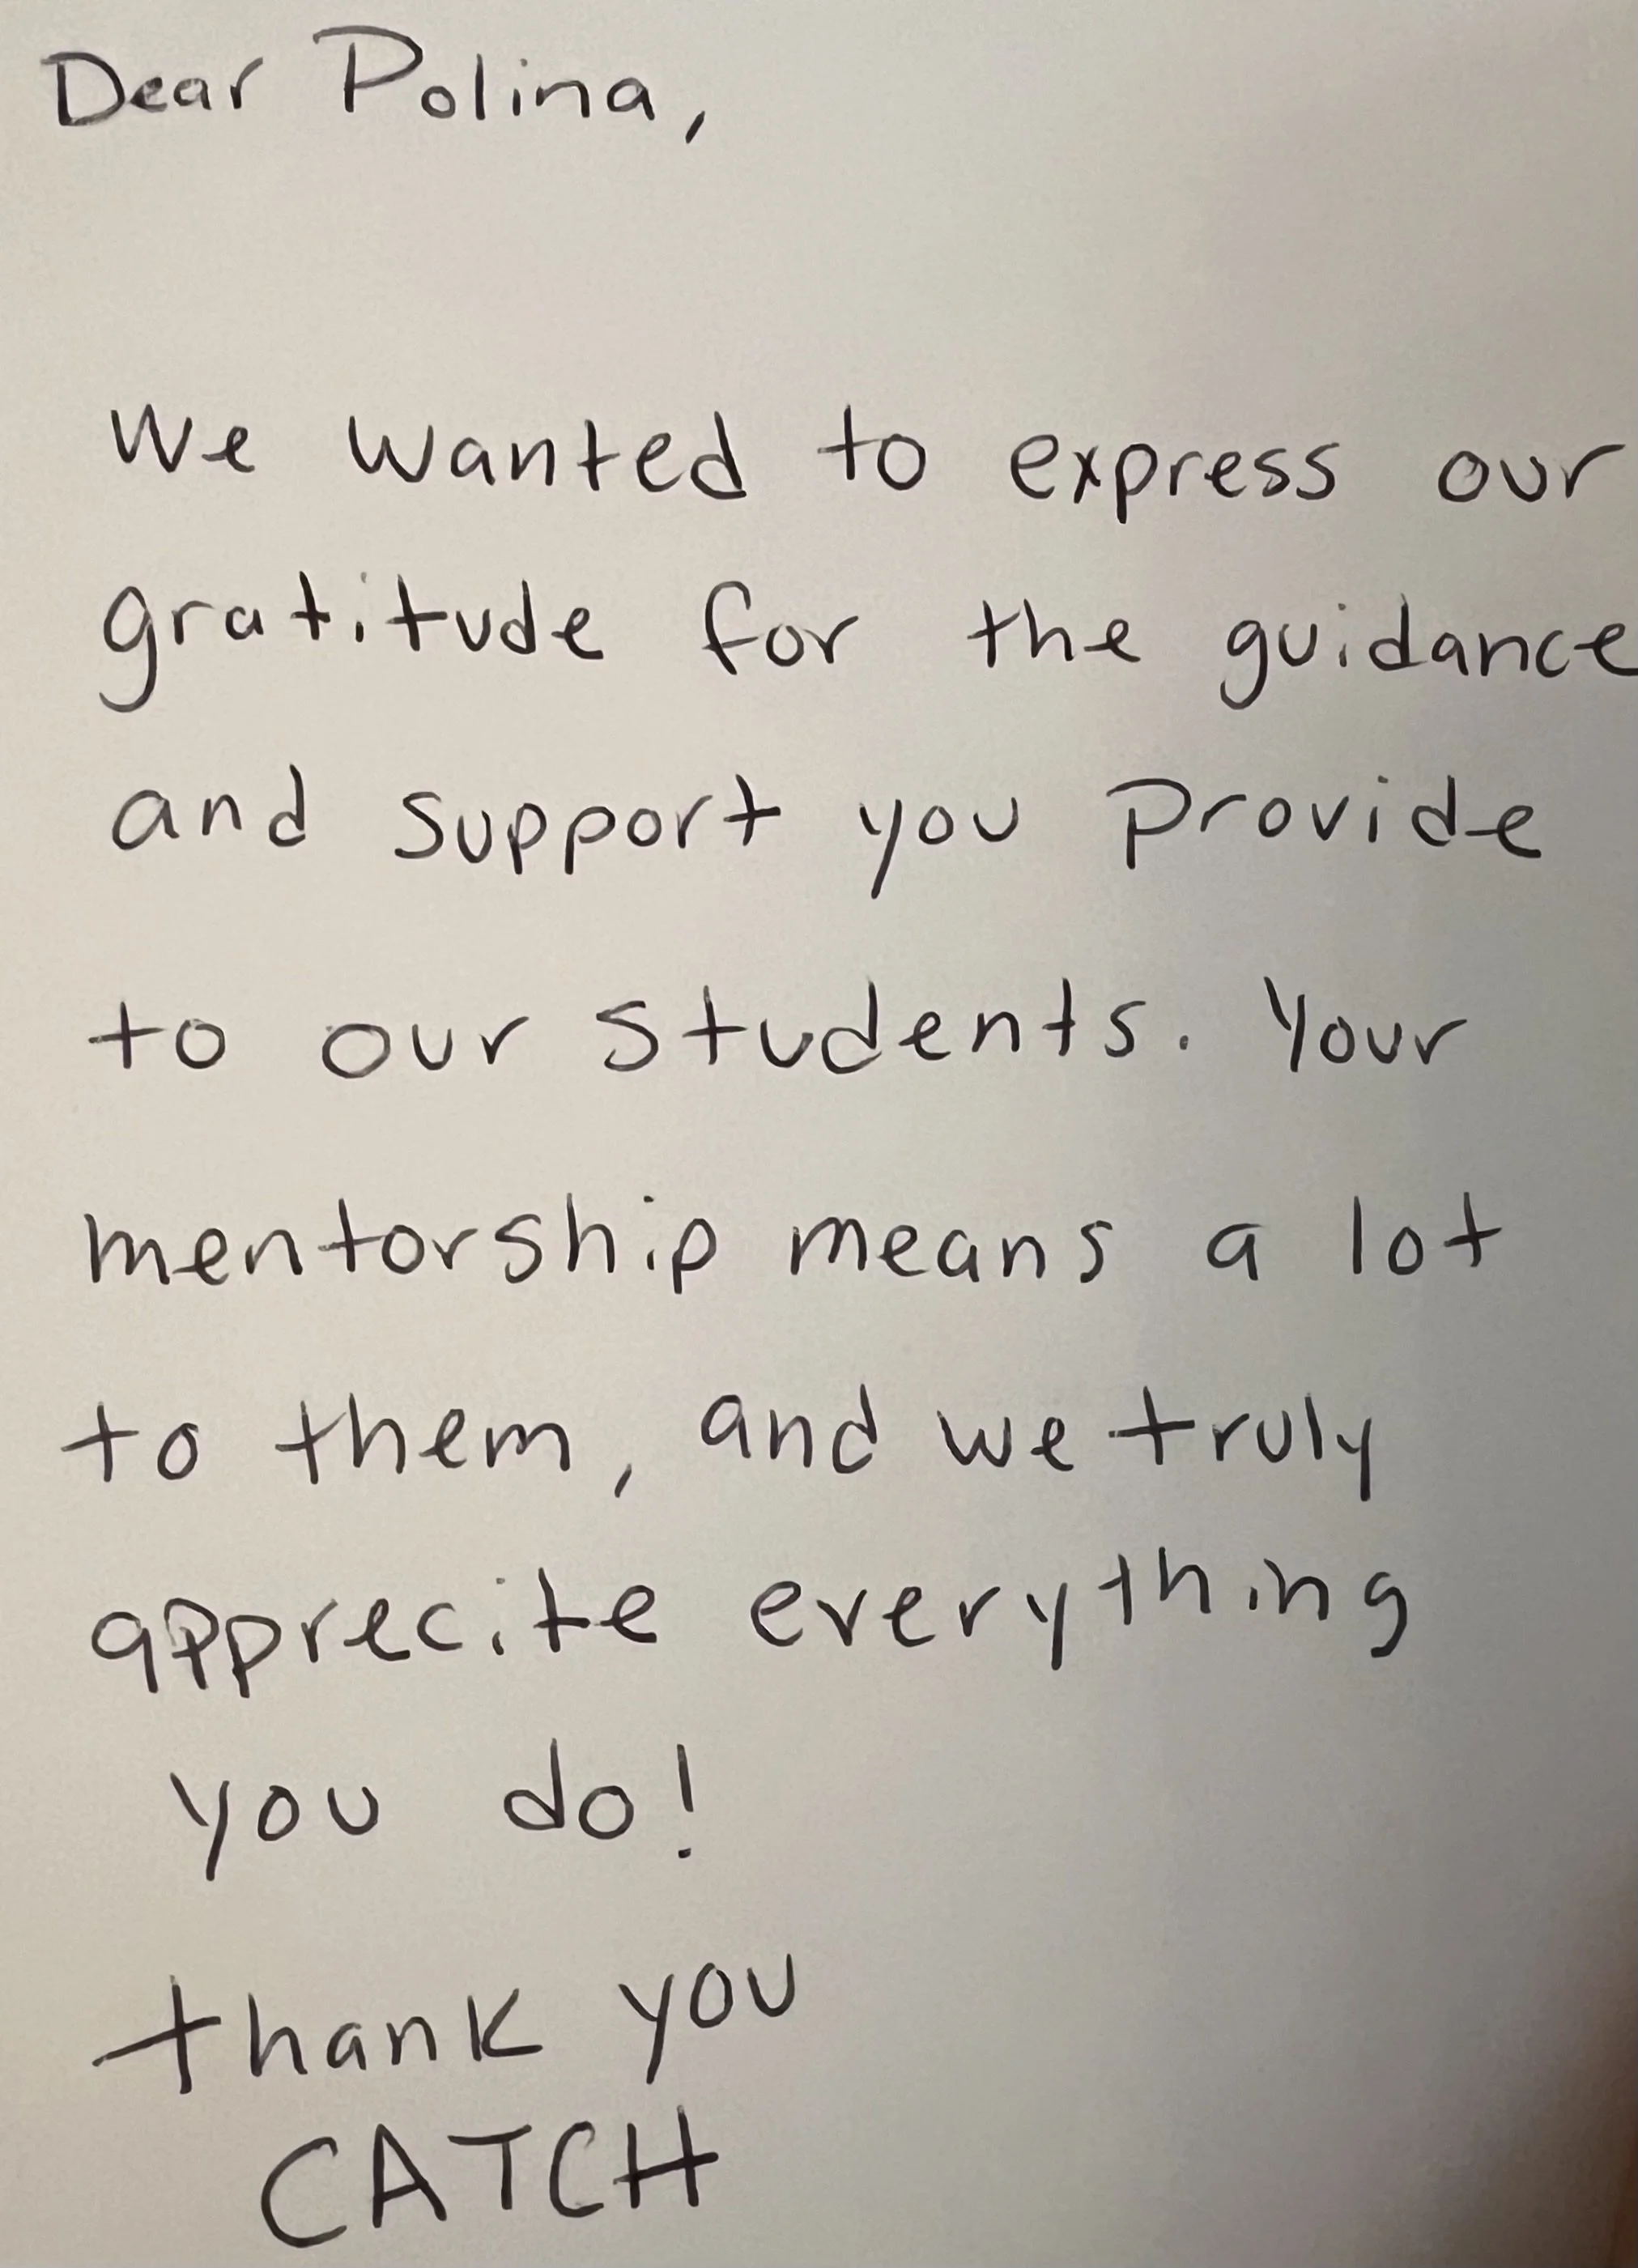 Dear Polina,
We wanted to express our
gratitude for the guidance
and support you provide
to our students. Your
mentorship means a lot
to them, and we truly
apprecite everything
you do!
thank you
CATCH